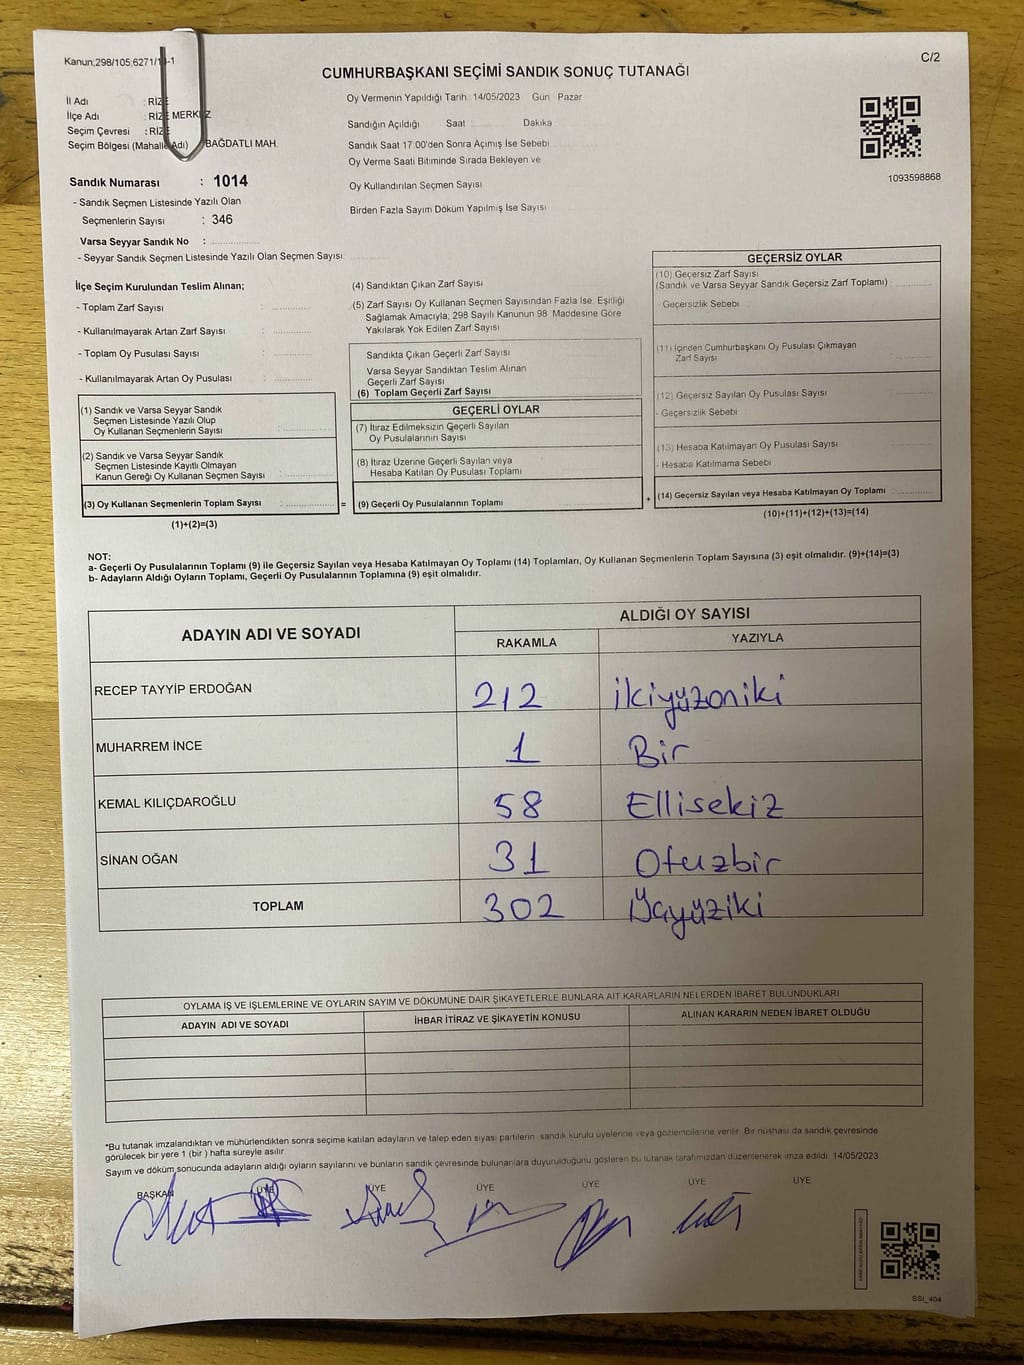 Kanun;298/105;6271/
-1
C/2
CUMHURBAŞKANI SEÇİMİ SANDIK SONUÇ TUTANAĞI
İl Adı : RİZE
İlçe Adı : RİZE MERKEZ
Seçim Çevresi : RİZE
Seçim Bölgesi (Mahalle Adı) BAĞDATLI MAH.
Sandık Numarası : 1014
- Sandık Seçmen Listesinde Yazılı Olan
Seçmenlerin Sayısı : 346
Varsa Seyyar Sandık No :
- Seyyar Sandık Seçmen Listesinde Yazılı Olan Seçmen Sayısı:
Oy Vermenin Yapıldığı Tarih 14/05/2023 Gün Pazar
Sandığın Açıldığı Saat : Dakika
Sandık Saat 17.00'den Sonra Açımış İse Sebebi
Oy Verme Saati Bitiminde Sırada Bekleyen ve
Oy Kullandırılan Seçmen Sayısı
Birden Fazla Sayım Döküm Yapılmış İse Sayısı
1093598868
İlçe Seçim Kurulundan Teslim Alınan;
- Toplam Zarf Sayısı :
- Kullanılmayarak Artan Zarf Sayısı :
- Toplam Oy Pusulası Sayısı :
- Kullanılmayarak Artan Oy Pusulası :
(1) Sandık ve Varsa Seyyar Sandık
Seçmen Listesinde Yazılı Olup
Oy Kullanan Seçmenlerin Sayısı :
(2) Sandık ve Varsa Seyyar Sandık
Seçmen Listesinde Kayıtlı Olmayan
Kanun Gereği Oy Kullanan Seçmen Sayısı :
(3) Oy Kullanan Seçmenlerin Toplam Sayısı :
=
(1)+(2)=(3)
(4) Sandıktan Çıkan Zarf Sayısı
(5) Zarf Sayısı Oy Kullanan Seçmen Sayısından Fazla İse, Eşitliği
Sağlamak Amacıyla; 298 Sayılı Kanunun 98 Maddesine Göre
Yakılarak Yok Edilen Zarf Sayısı
Sandıkta Çıkan Geçerli Zarf Sayısı
Varsa Seyyar Sandıktan Teslim Alınan
Geçerli Zarf Sayısı
(6) Toplam Geçerli Zarf Sayısı
GEÇERLİ OYLAR
(7) İtiraz Edilmeksizin Geçerli Sayılan
Oy Pusulalarının Sayısı
(8) İtiraz Üzerine Geçerli Sayılan veya
Hesaba Katılan Oy Pusulası Toplamı
(9) Geçerli Oy Pusulalarının Toplamı
+
GEÇERSİZ OYLAR
(10) Geçersiz Zarf Sayısı
(Sandık ve Varsa Seyyar Sandık Geçersiz Zarf Toplamı) :
- Geçersizlik Sebebi
(11) İçinden Cumhurbaşkanı Oy Pusulası Çıkmayan
Zarf Sayısı
(12) Geçersiz Sayılan Oy Pusulası Sayısı
- Geçersizlik Sebebi
(13) Hesaba Katılmayan Oy Pusulası Sayısı
- Hesaba Katılmama Sebebi
(14) Geçersiz Sayılan veya Hesaba Katılmayan Oy Toplamı :
(10)+(11)+(12)+(13)=(14)
NOT:
a- Geçerli Oy Pusulalarının Toplamı (9) ile Geçersiz Sayılan veya Hesaba Katılmayan Oy Toplamı (14) Toplamları, Oy Kullanan Seçmenlerin Toplam Sayısına (3) eşit olmalıdır. (9)+(14)=(3)
b- Adayların Aldığı Oyların Toplamı, Geçerli Oy Pusulalarının Toplamına (9) eşit olmalıdır.
ADAYIN ADI VE SOYADI
ALDIĞI OY SAYISI
RAKAMLA YAZIYLA
RECEP TAYYİP ERDOĞAN 212 ikiyüzoniki
MUHARREM İNCE 1 Bir
KEMAL KILIÇDAROĞLU 58 Ellisekiz
SİNAN OĞAN 31 Otuzbir
TOPLAM 302 Üçyüziki
OYLAMA İŞ VE İŞLEMLERİNE VE OYLARIN SAYIM VE DÖKÜMÜNE DAİR ŞİKAYETLERLE BUNLARA AİT KARARLARIN NELERDEN İBARET BULUNDUKLARI
ADAYIN ADI VE SOYADI İHBAR İTİRAZ VE ŞİKAYETİN KONUSU ALINAN KARARIN NEDEN İBARET OLDUĞU
*Bu tutanak imzalandıktan ve mühürlendikten sonra seçime katılan adayların ve talep eden siyasi partilerin sandık kurulu üyelerine veya gözlemcilerine verilir. Bir nüshası da sandık çevresinde
görülecek bir yere 1 (bir) hafta süreyle asılır.
Sayım ve döküm sonucunda adayların aldığı oyların sayılarını ve bunların sandık çevresinde bulunanlara duyurulduğunu gösteren bu tutanak tarafımızdan düzenlenerek imza edildi. 14/05/2023
BAŞKAN ÜYE ÜYE ÜYE ÜYE ÜYE ÜYE
SSİ_404